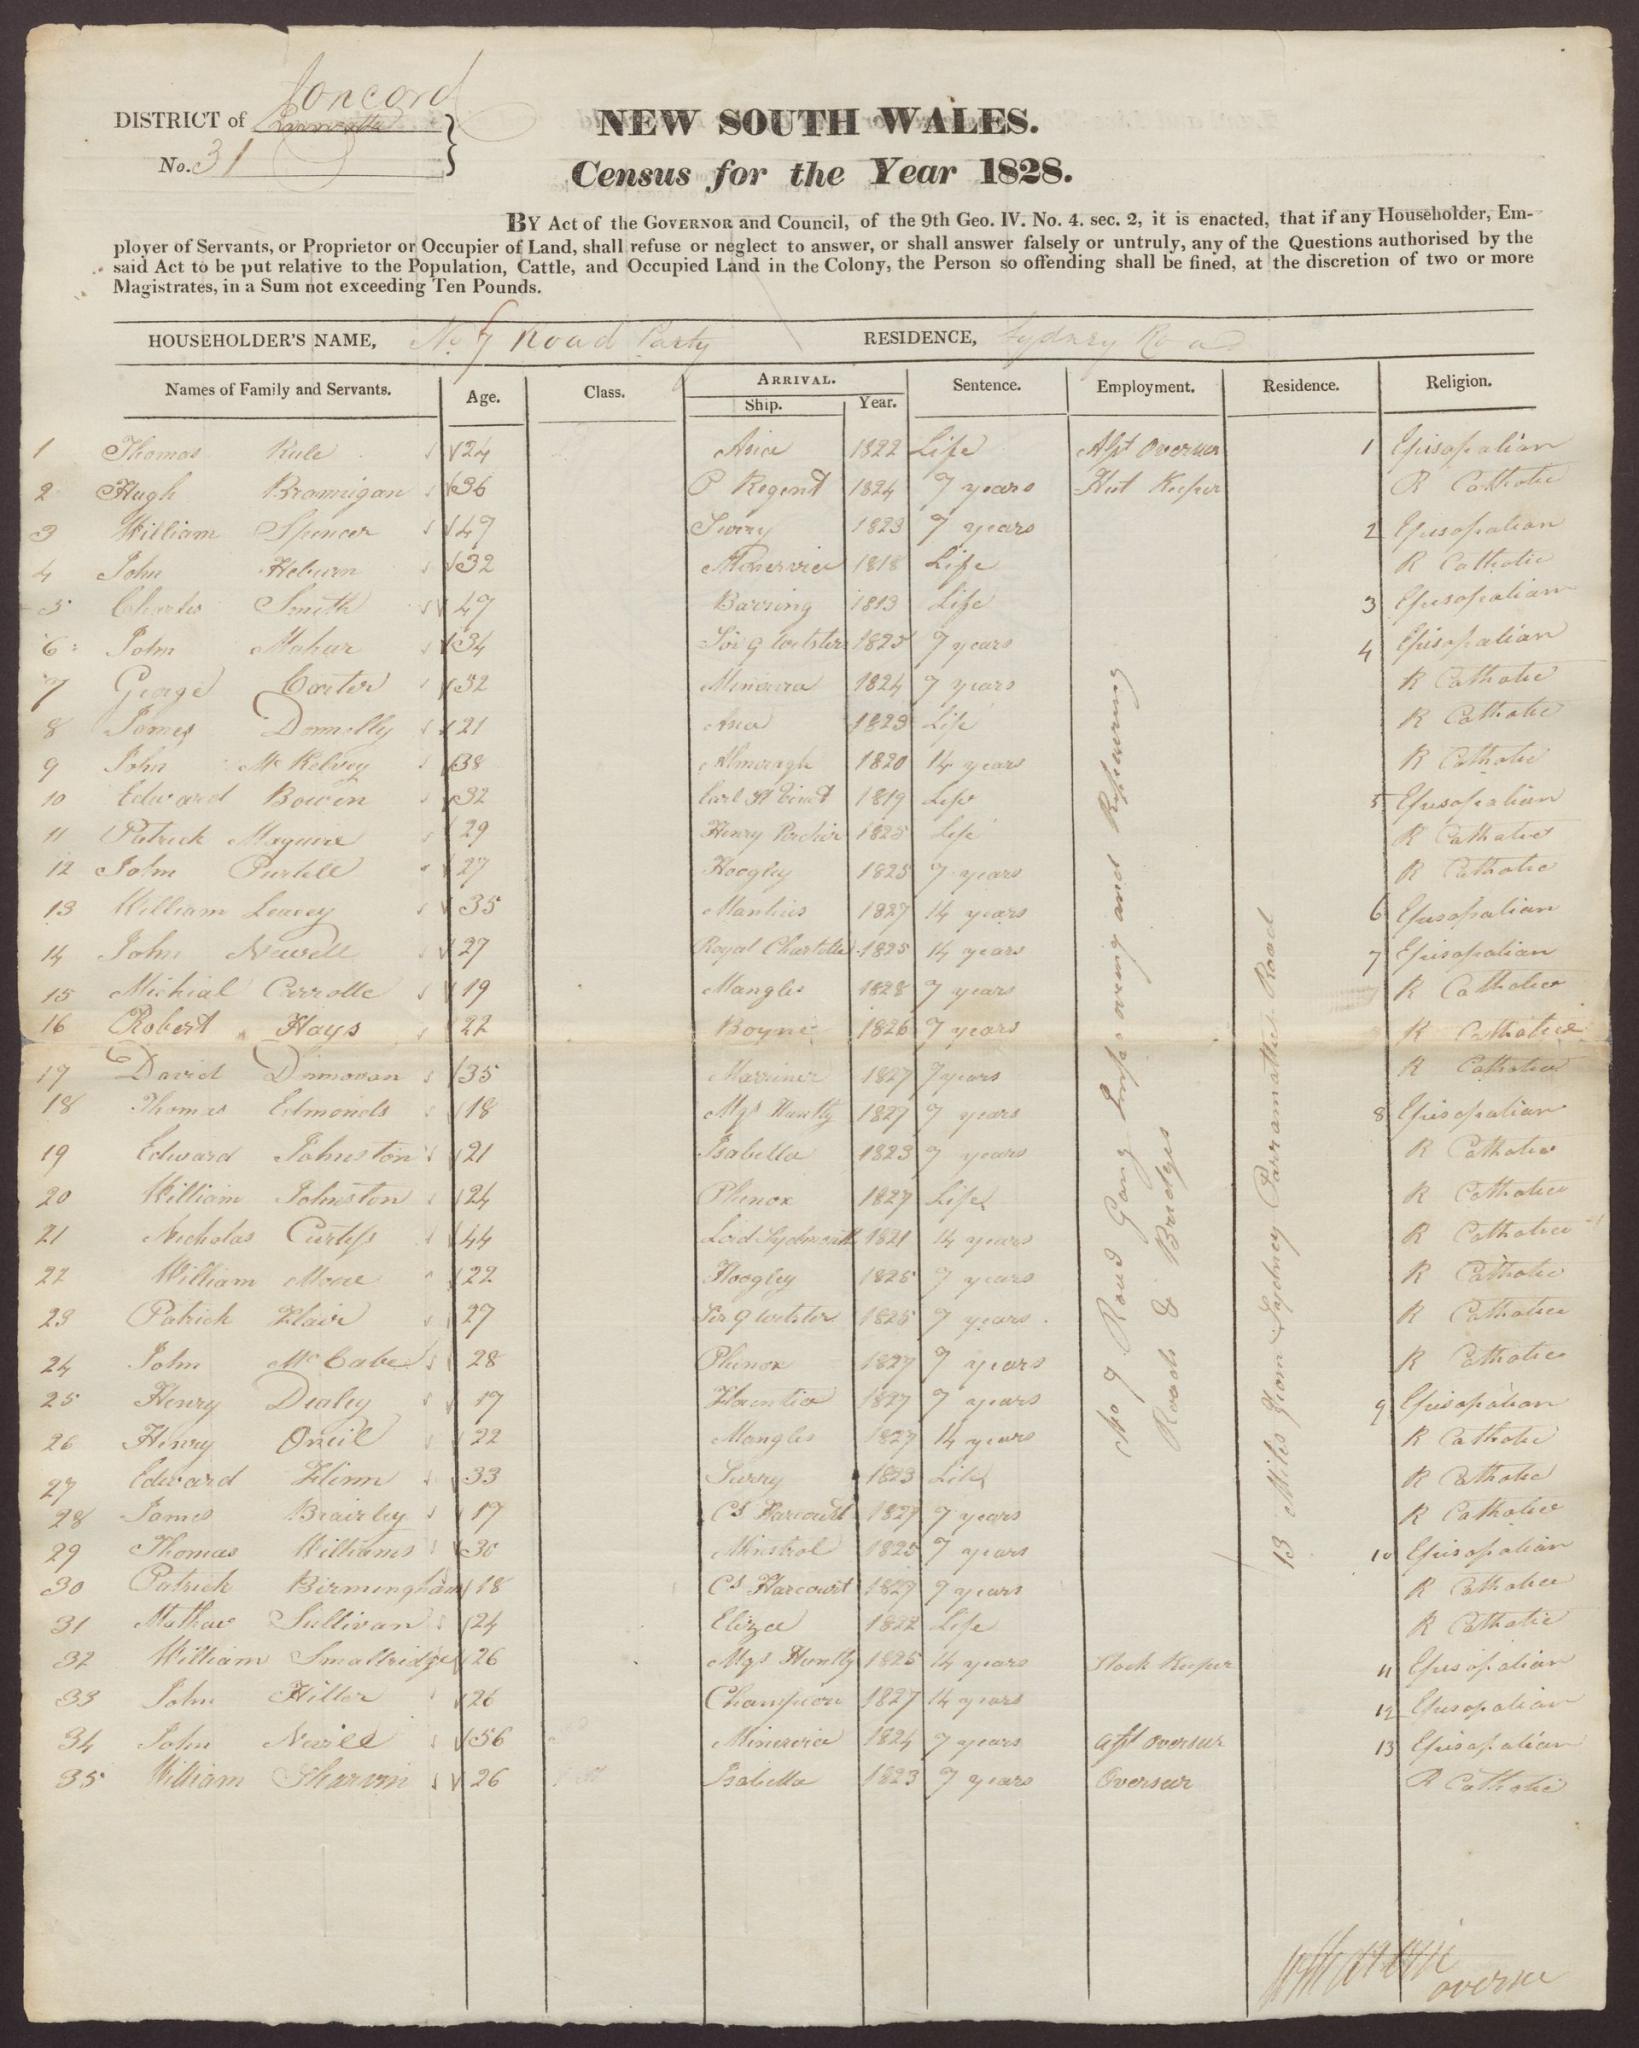 DISTRICT of Concord
Parramatta
No. 31
NEW SOUTH WALES.
Census for the Year 1828.
BY Act of the GOVERNOR and Council, of the 9th Geo. IV. No. 4. sec. 2, it is enacted, that if any Householder, Em-
ployer of Servants, or Proprietor or Occupier of Land, shall refuse or neglect to answer, or shall answer falsely or untruly, any of the Questions authorised by the
said Act to be put relative to the Population, Cattle, and Occupied Land in the Colony, the Person so offending shall be fined, at the discretion of two or more
Magistrates, in a Sum not exceeding Ten Pounds.
HOUSEHOLDER'S NAME, No 7 Road Party RESIDENCE, Sydney Road
Names of Family and Servants. Age. Class. ARRIVAL. Sentence. Employment. Residence. Religion.
Ship. Year.
1 Thomas Rule 24 Asia 1822 Life Asst Overseer 1 Episopalian
2 Hugh Brannigan 36 P Regent 1824 7 years Hut Keeper R Catholic
3 William Spencer 47 Surry 1823 7 years 2 Episopalian
4 John Heburn 32 Minervia 1818 Life R Catholic
5 Charles Smith 47 Barring 1813 Life 3 Episopalian
6 John Mahur 34 Sir G Webster 1825 7 years 4 Episopalian
7 George Carter 32 Minerva 1824 7 years R Catholic
8 James Donnelly 21 Asia 1823 Life R Catholic
9 John McKelvey 38 Almoragh 1820 14 years R Catholic
10 Edward Bowen 32 Earl St Vinct 1819 Life 5 Episopalian
11 Patrick Maguire 29 Henry Porcher 1825 Life R Catholic
12 John Purtell 27 Hoogley 1825 7 years R Catholic
13 William Leavey 35 Manlius 1827 14 years 6 Episopalian
14 John Newell 27 Royal Charlotte 1825 14 years 7 Episopalian
15 Michial Carrolle 19 Mangles 1828 7 years R Catholic
16 Robert Hays 22 Boyne 1826 7 years R Catholic
17 David Donnovan 35 Marriner 1827 7 years R Catholic
18 Thomas Edmonds 18 Mqs Huntly 1827 7 years 8 Episopalian
19 Edward Johnston 21 Isabella 1823 7 years R Catholic
20 William Johnston 24 Phenox 1827 Life R Catholic
21 Nicholas Curtiss 44 Lord Sydmouth 1821 14 years R Catholic
22 William Moore 22 Hoogley 1825 7 years R Catholic
23 Patrick Flair 27 Sir G Webster 1825 7 years R Catholic
24 John McCabe 28 Phenox 1827 7 years R Catholic
25 Henry Dealey 17 Florentia 1827 7 years 9 Episopalian
26 Henry Oneil 22 Mangles 1827 14 years R Catholic
27 Edward Flinn 33 Surry 1823 Life R Catholic
28 James Brairley 17 Cs Harcourt 1827 7 years R Catholic
29 Thomas Williams 30 Minstrol 1825 7 years 10 Episopalian
30 Patrick Birmingham 18 Cs Harcourt 1827 7 years R Catholic
31 Mathew Sullivan 24 Eliza 1822 Life R Catholic
32 William Smallridge 26 Mqs Huntly 1825 14 years Stock Keeper 11 Episopalian
33 John Hiller 26 Champion 1827 14 years 12 Episopalian
34 John Neville 56 Minervia 1824 7 years asst overseer 13 Episopalian
35 William Sharvin 26 Isabella 1823 7 years Overseer R Catholic
No 7 Road Gang Imployed overing and Repairing
Roads & Bridges
13 Miles from Sydney Parramatta Road
overseer